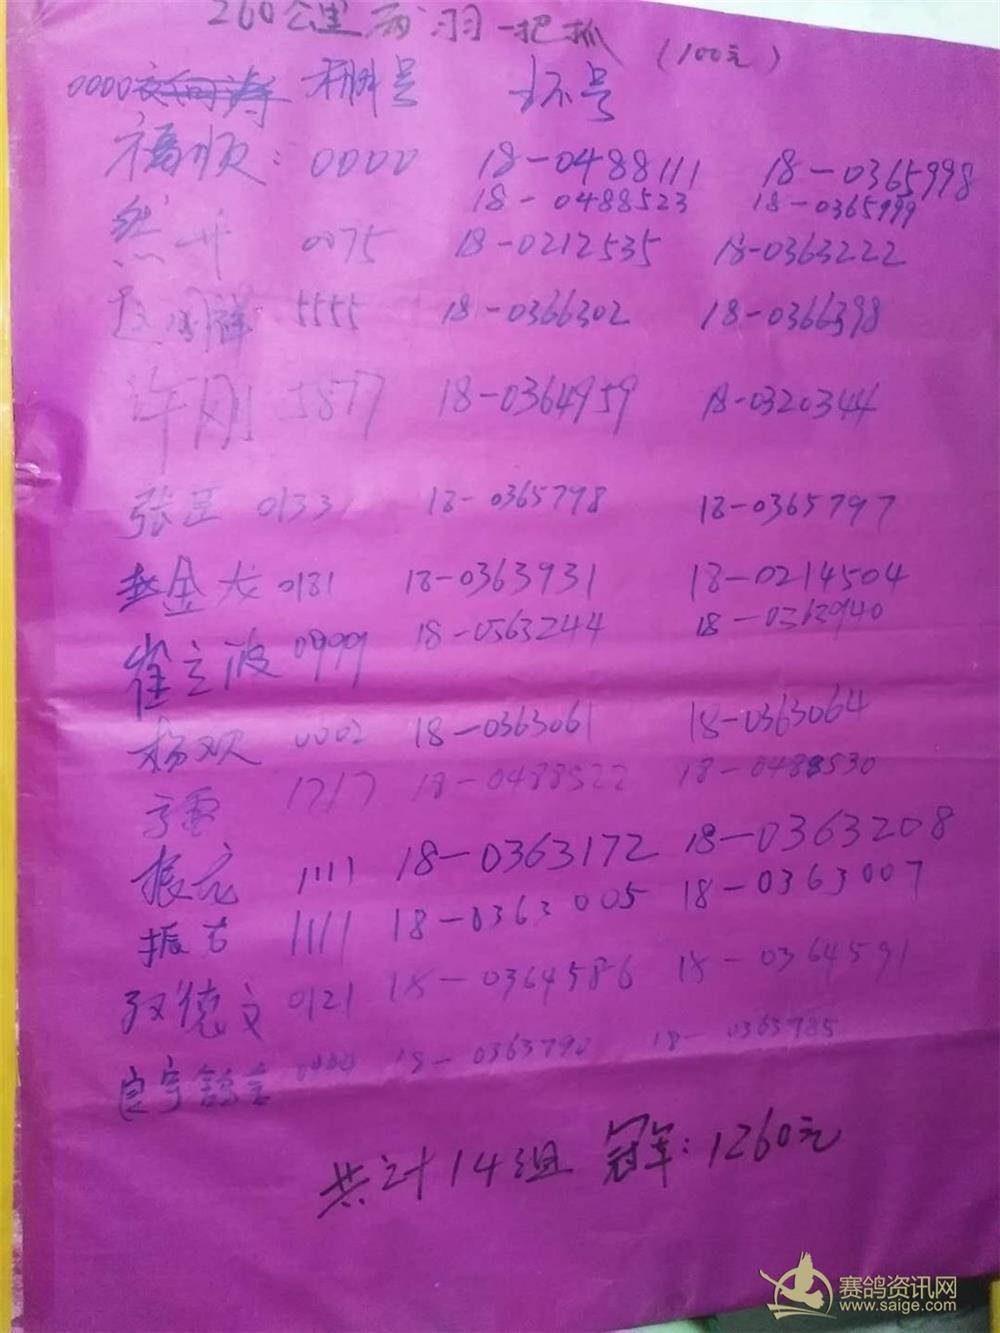 260公里两羽一把抓 (100元)
0000 棚号 环号
福顺: 0000 18-0488111 18-0365998
18-0488523 18-0365999
0075 18-0212535 18-0363222
5555 18-0366302 18-0366398
许刚 5877 18-0364959 18-0320344
张臣 0133 18-0365798 18-0365797
赵金龙 0181 18-0363931 18-0214504
崔立波 0999 18-0363244 18-0362940
杨双 0002 18-0363061 18-0363064
1717 18-0488522 18-0488530
振龙 1111 18-0363172 18-0363208
振 1111 18-0363005 18-0363007
德文 0121 18-0364586 18-0364591
良宇鸽舍 18-0363790 18-0363785
共计14组 冠军:1260元
赛鸽资讯网
www.saige.com